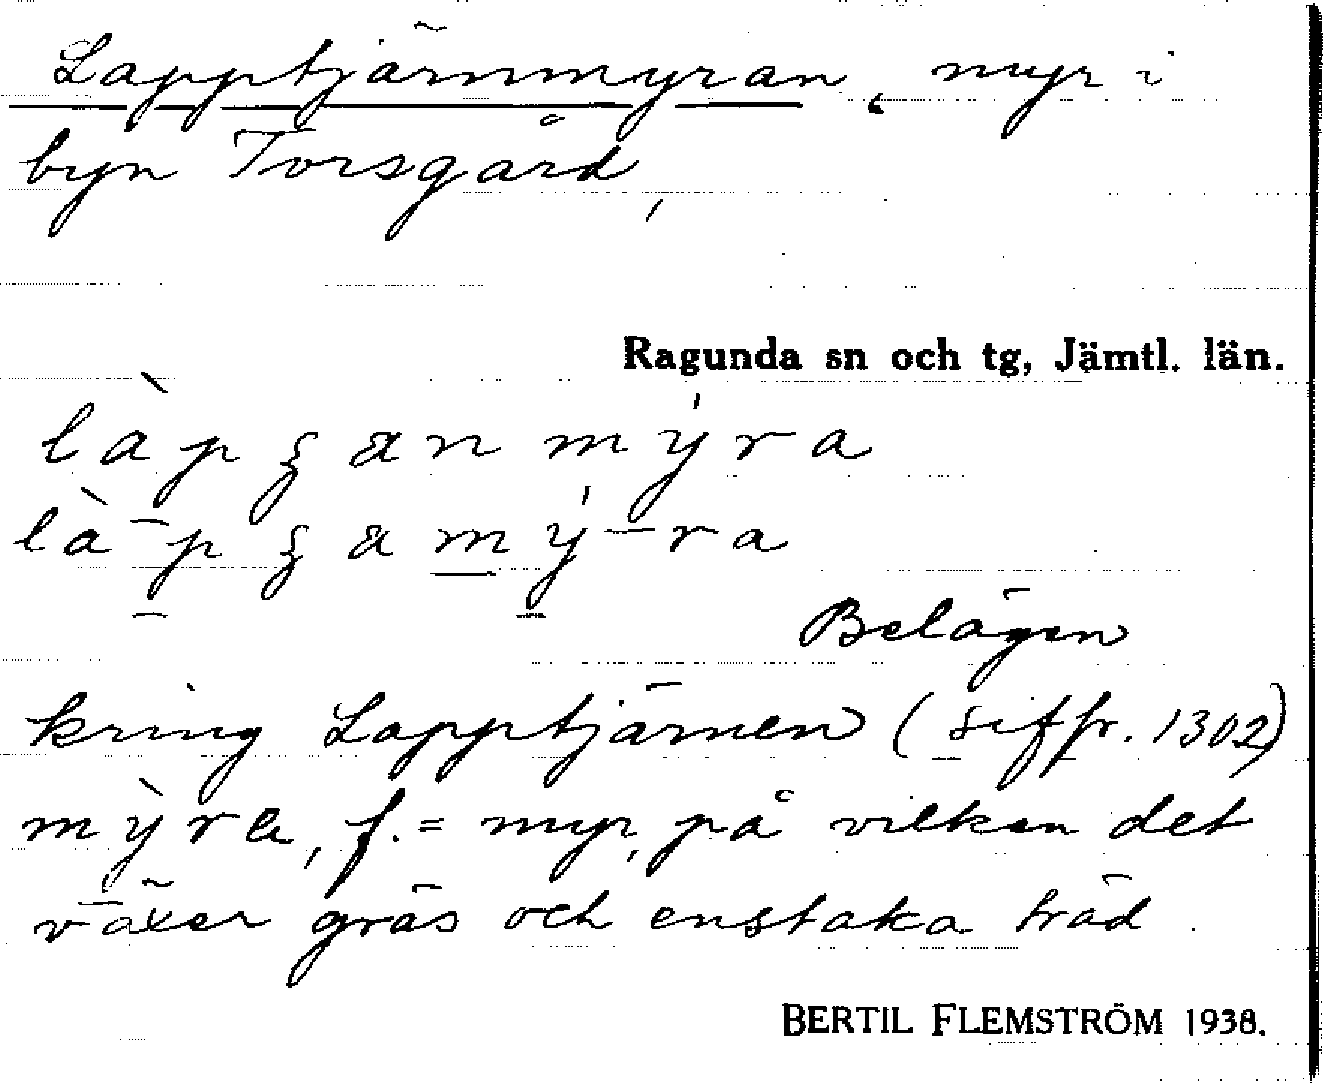 Lapptjärnmyran, myr i
byn Torsgård,
Ragunda sn och tg, Jämtl. län.
Belägen
kring Lapptjärnen (siffr. 1302)
mỳra, f. = myr, på vilken det
växer gräs och enstaka träd.
BERTIL FLEMSTRÖM 1938.